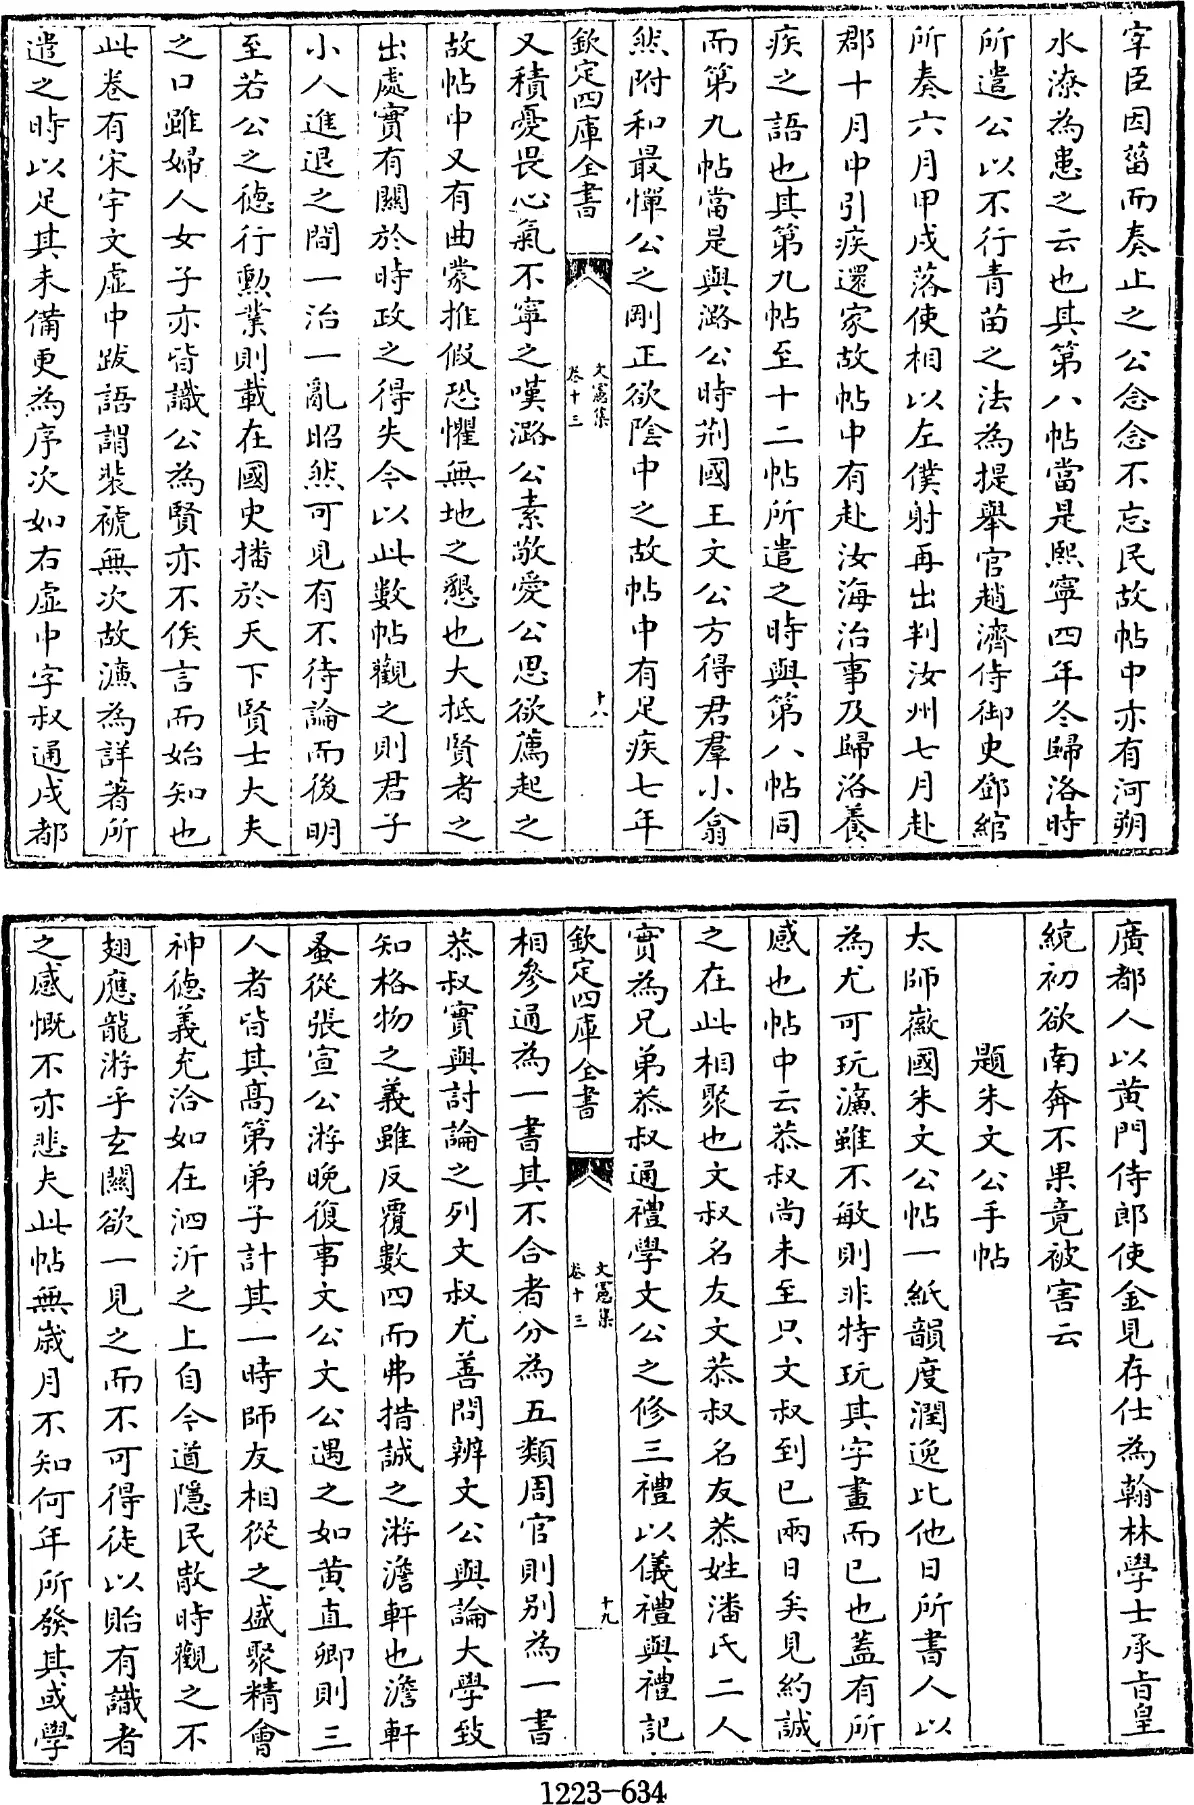 宰臣因菑而奏止之公念念不忘民故帖中亦有河朔
水潦為患之云也其第八帖當是熙寧四年冬歸洛時
所遣公以不行青苗之法為提舉官趙濟侍御史鄧綰
所奏六月甲戌落使相以左僕射再出判汝州七月赴
郡十月中引疾還家故帖中有赴汝海治事及歸洛養
疾之語也其第九帖至十二帖所遣之時與第八帖同
而第九帖當是與潞公時荆國王文公方得君羣小翕
然附和最憚公之剛正欲陰中之故帖中有足疾七年
欽定四庫全書
文憲集
卷十三
十八
又積憂畏心氣不寧之嘆潞公素敬愛公思欲薦起之
故帖中又有曲蒙推假恐懼無地之懇也大抵賢者之
出處實有關於時政之得失今以此數帖觀之則君子
小人進退之間一治一亂昭然可見有不待論而後明
至若公之德行勲業則載在國史播於天下賢士大夫
之口雖婦人女子亦皆識公為賢亦不俟言而始知也
此卷有宋宇文虛中跋語謂裝褫無次故濂為詳著所
遣之時以足其未備更為序次如右虛中字叔通成都
廣都人以黄門侍郎使金見存仕為翰林學士承旨皇
統初欲南奔不果竟被害云
題朱文公手帖
太師徽國朱文公帖一紙韻度潤逸比他日所書人以
為尤可玩濂雖不敏則非特玩其字畫而已也蓋有所
感也帖中云恭叔尚未至只文叔到已兩日矣見約誠
之在此相聚也文叔名友文恭叔名友恭姓潘氏二人
實為兄弟恭叔通禮學文公之修三禮以儀禮與禮記
欽定四庫全書
文憲集
卷十三
十九
相參通為一書其不合者分為五類周官則别為一書
恭叔實與討論之列文叔尤善問辨文公與論大學致
知格物之義雖反覆數四而弗措誠之游澹軒也澹軒
蚤從張宣公游晚復事文公文公遇之如黄直卿則三
人者皆其高第弟子計其一時師友相從之盛聚精會
神德義充洽如在泗沂之上自今道隱民散時觀之不
翅應龍游乎玄闕欲一見之而不可得徒以貽有識者
之感慨不亦悲夫此帖無嵗月不知何年所發其或學
1223-634